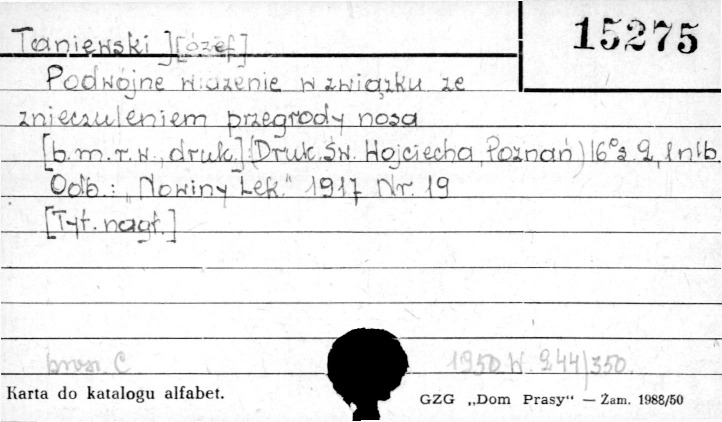 15275
Taniewski J[ózef]
Podwójne widzenie w związku ze
znieczuleniem przegrody nosa
[b.m.r.w., druk.] (Druk. Św. Wojciecha, Poznań) 16° s. 2, 1 nlb.
Odb.: „Nowiny Lek." 1917 Nr. 19
[Tyt. nagł.]
C. 1950 W. 244/350.
Karta do katalogu alfabet.
GZG „Dom Prasy" — Zam. 1988/50